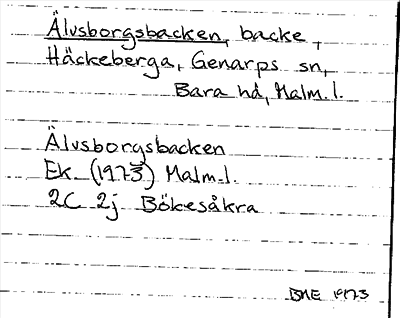 Älvsborgsbacken, backe,
Häckeberga, Genarps sn,
Bara hd, Malm.l.
Älvsborgsbacken
Ek (1973) Malm.l.
2C 2j Bökesåkra
BME 1973